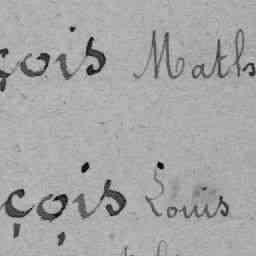 çois Math
çois Louis